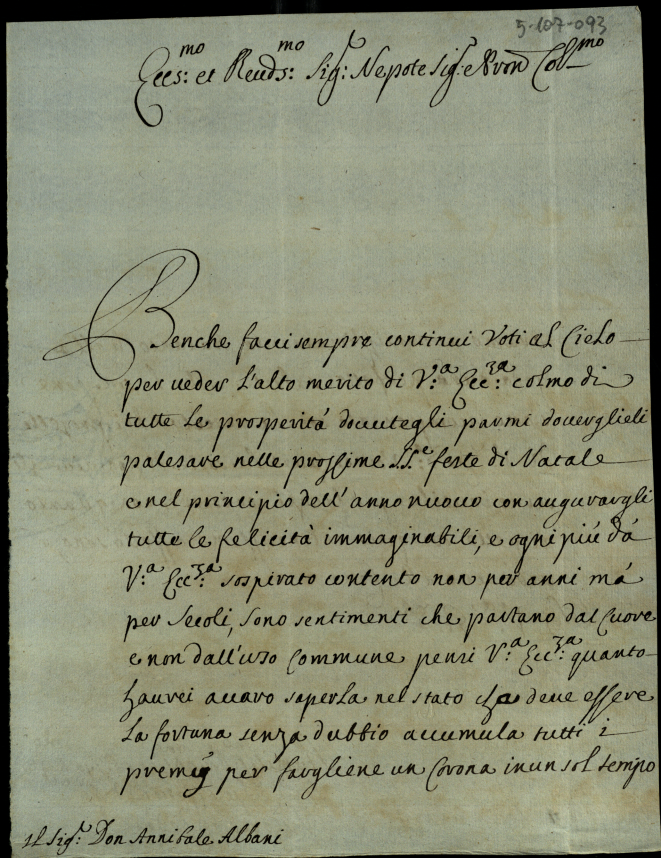 5-107-093
Eccs:mo et Reuds:mo Sig:r Nepote Sig:r e Pron Col-mo
Benche facci sempre continui Voti al Cielo
per ueder l'alto merito di V:a Ecc:3a colmo di
tutte le prosperitá douutegli parmi douerglieli
palesare nelle prossime SS:e feste di Natale
e nel principio dell'anno nuouo con augurargli
tutte le felicitá immaginabili, e ogni piú dá
V:a Ecc:3a sospirato contento non per anni má
per Secoli, sono sentimenti che partano dal Cuore
e non dall'uso Commune pensi V:a Ecc:3a quanto
haurei a caro saperla nel stato che deue essere
la fortuna senza dubbio accumula tutti i
premij per fargliene un Corona in un sol tempo
Il Sig:r Don Annibale Albani